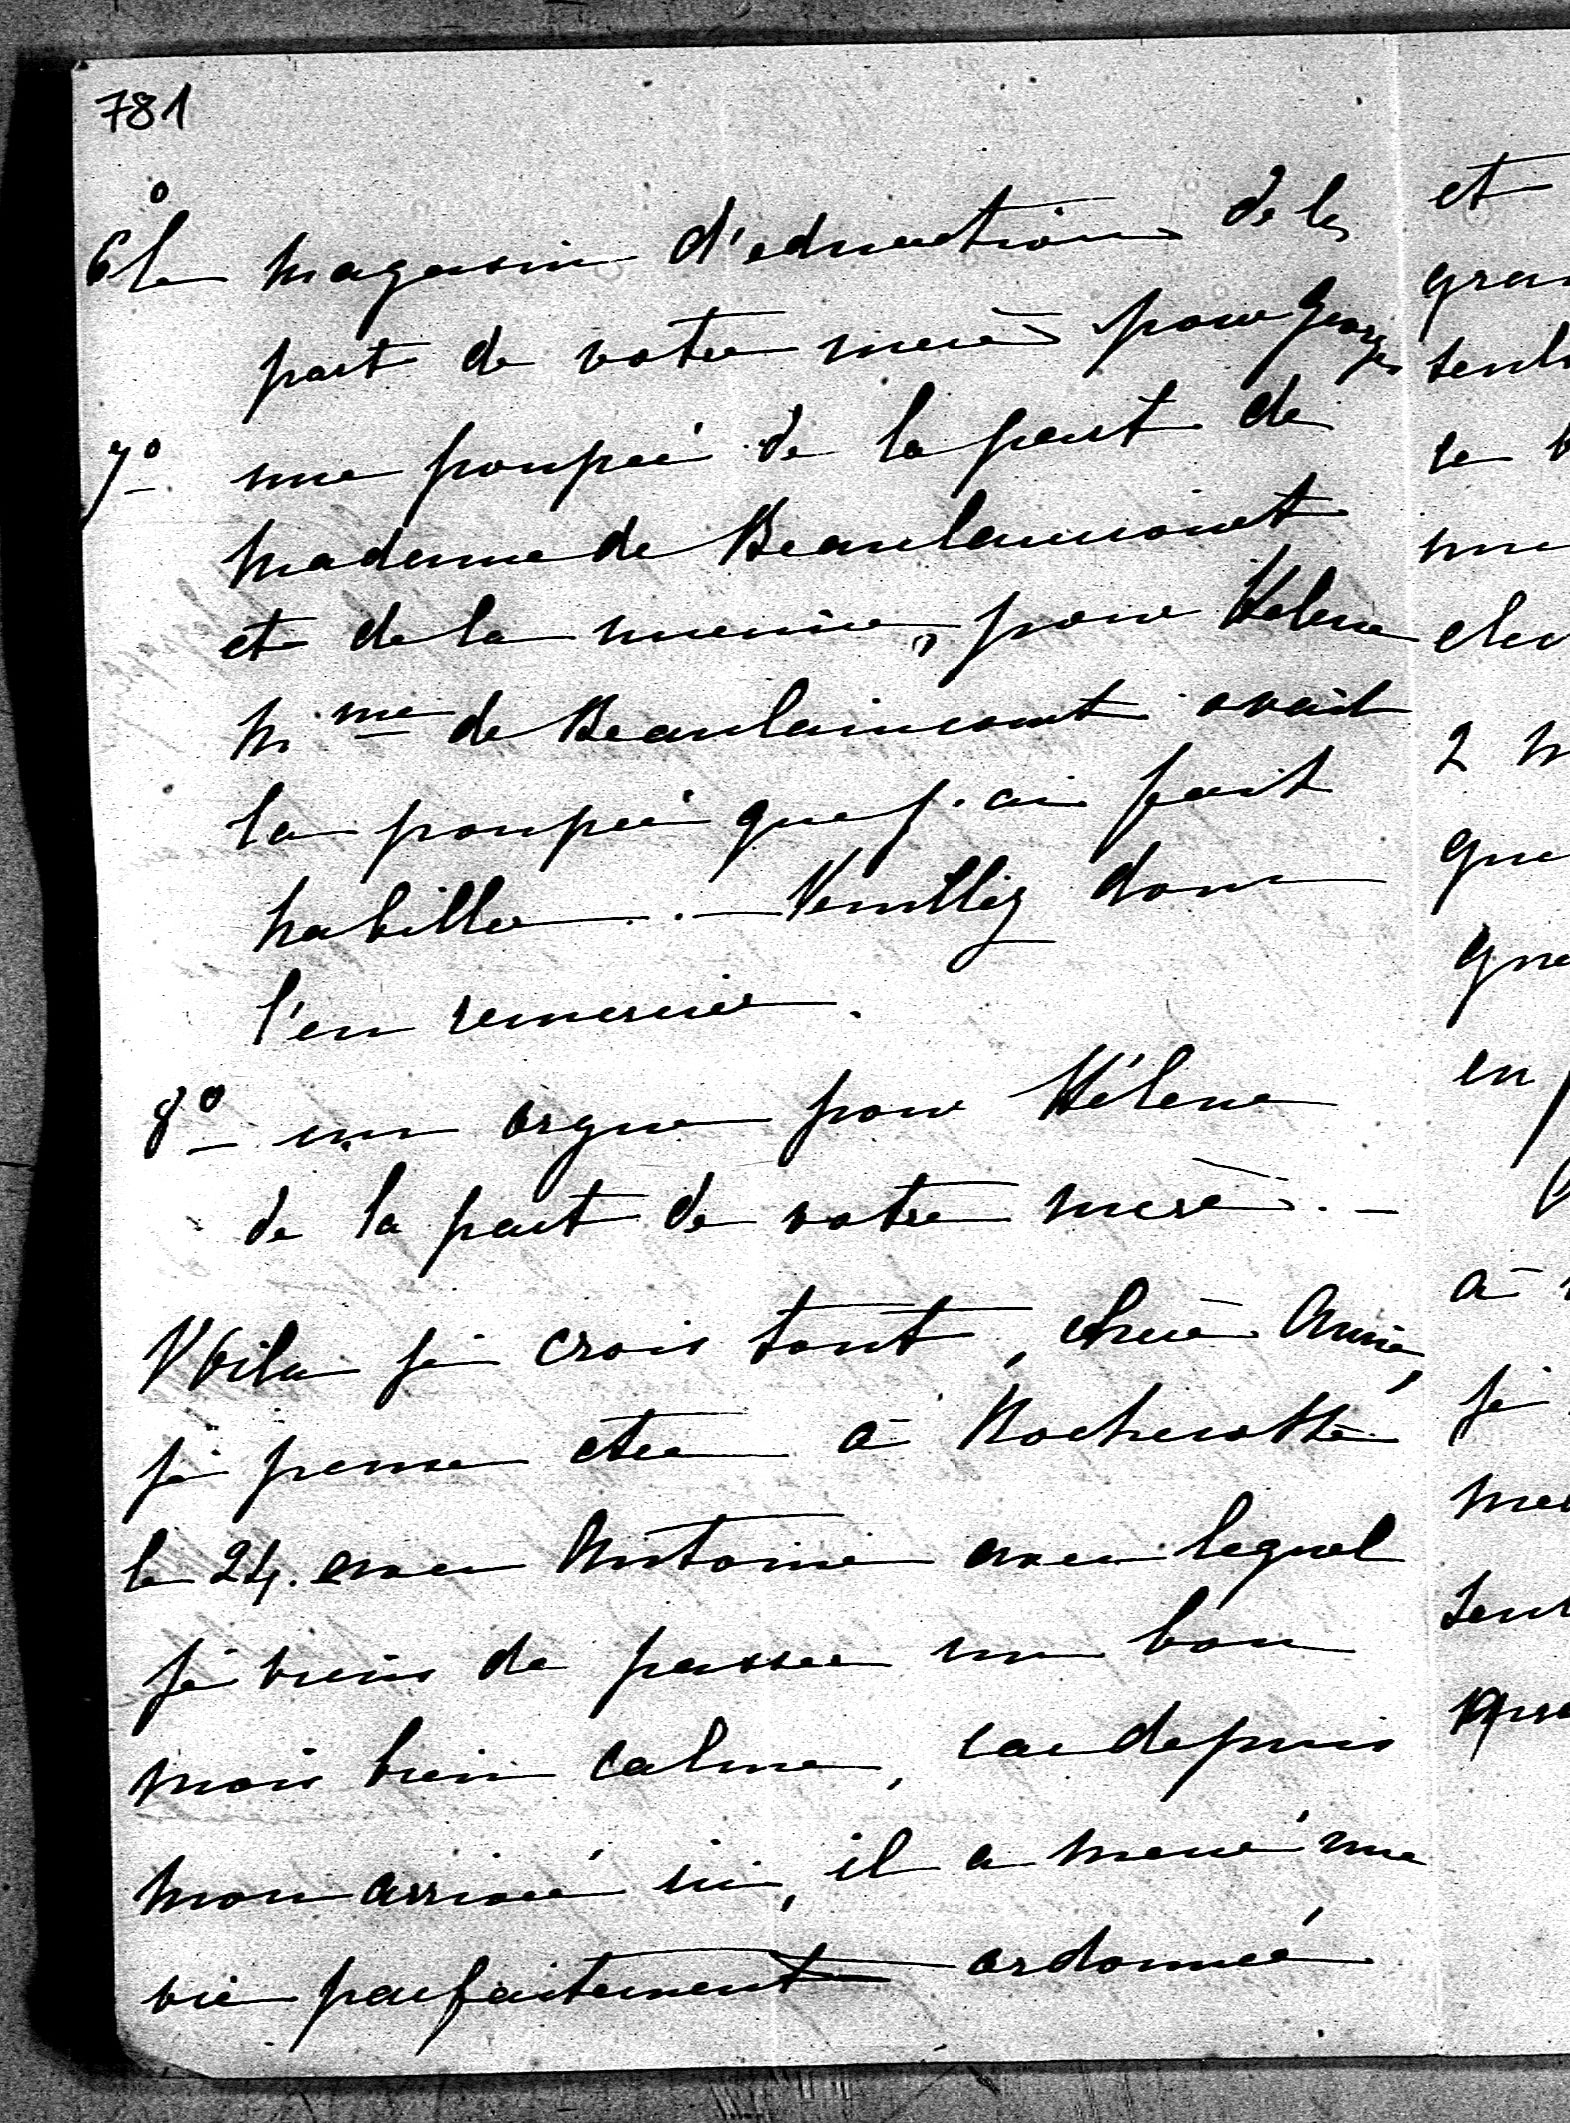 781
6° le magasin d'education de la
part de votre mère pour Georges
7° une poupée de la part de
Madame de Beaulaincourt
et de la mienne, pour Helene
Mme de Beaulaincourt avait
la poupée que j'ai fait
habiller. - Veuillez donc
l'en remercier.
8° un orgue pour Hélene
de la part de votre mère. -
Voila je crois tout, chère Amie,
je pense etre à Rochecotte
le 24. avec Antoine avec lequel
je viens de passer un bon
mois bien calme, car depuis
mon arrivée ici, il a mené une
vie parfaitement ordonnée
et
2
en
à
je